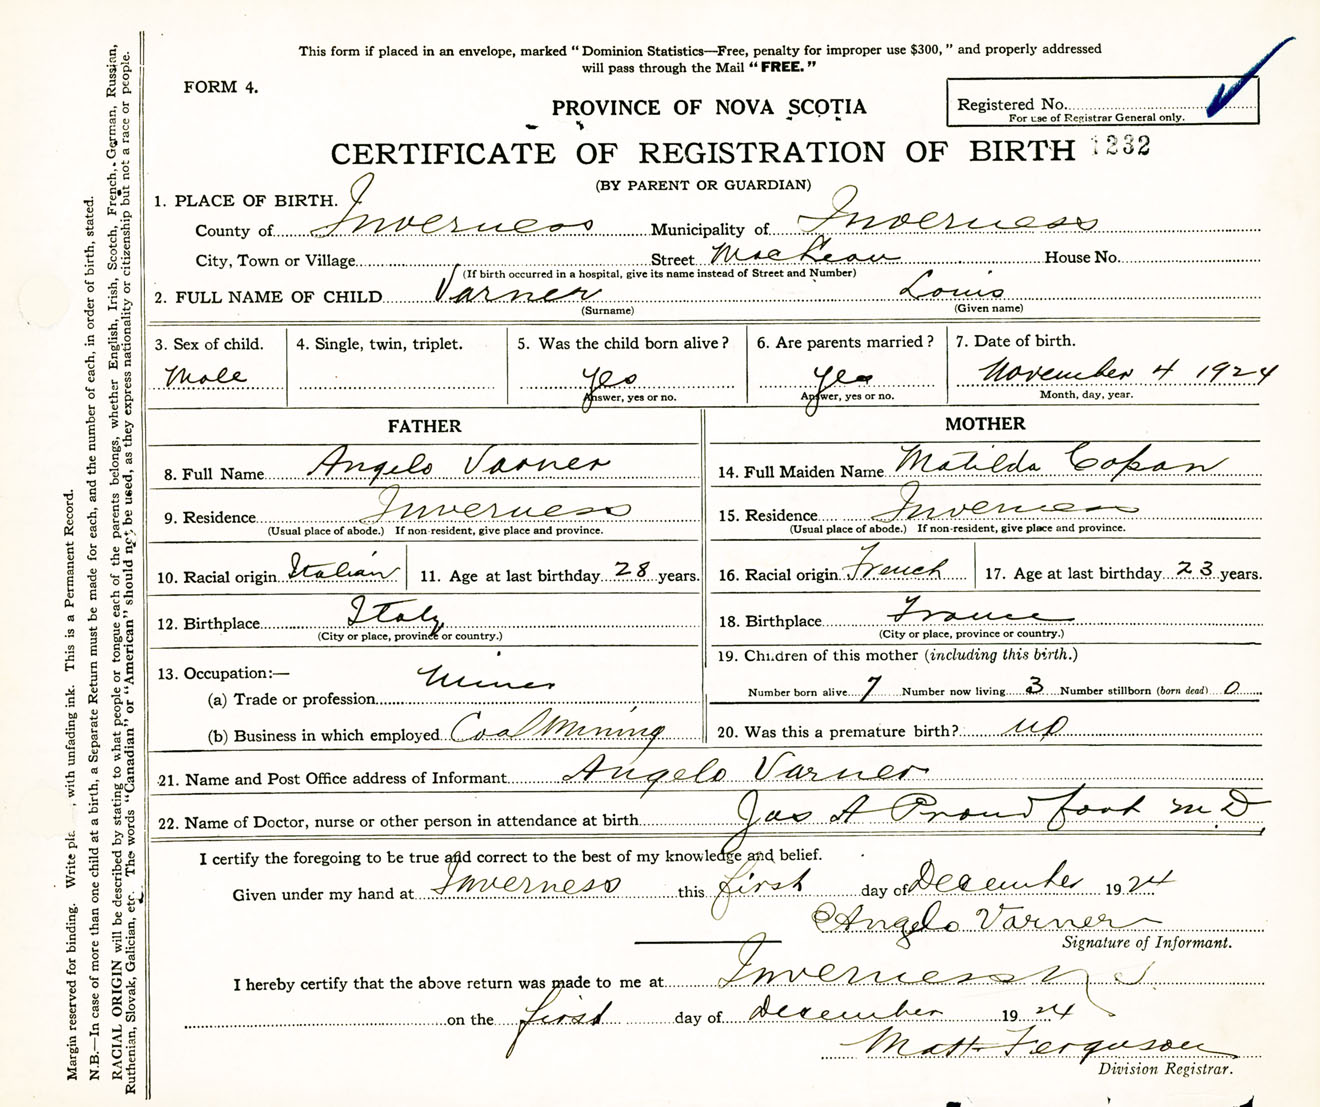 This form if placed in an envelope, marked "Dominion Statistics—Free, penalty for improper use $300," and properly addressed
will pass through the Mail "FREE."
FORM 4.
PROVINCE OF NOVA SCOTIA
Registered No.
For use of Registrar General only.
CERTIFICATE OF REGISTRATION OF BIRTH 1232
(BY PARENT OR GUARDIAN)
1. PLACE OF BIRTH.
County of Inverness Municipality of Inverness
City, Town or Village Street MacLean House No.
(If birth occurred in a hospital, give its name instead of Street and Number)
2. FULL NAME OF CHILD Varner Louis
(Surname) (Given name)
3. Sex of child. 4. Single, twin, triplet. 5. Was the child born alive? 6. Are parents married? 7. Date of birth.
Male yes yes November 4 1924
Answer, yes or no. Answer, yes or no. Month, day, year.
FATHER MOTHER
8. Full Name Angelo Varner 14. Full Maiden Name Matilda Copan
9. Residence Inverness 15. Residence Inverness
(Usual place of abode.) If non-resident, give place and province. (Usual place of abode.) If non-resident, give place and province.
10. Racial origin Italian 11. Age at last birthday 28 years. 16. Racial origin French 17. Age at last birthday 23 years.
12. Birthplace Italy 18. Birthplace France
(City or place, province or country.) (City or place, province or country.)
13. Occupation:— 19. Children of this mother (including this birth.)
(a) Trade or profession Miner Number born alive 7 Number now living 3 Number stillborn (born dead) 0
(b) Business in which employed Coal Mining 20. Was this a premature birth? no
21. Name and Post Office address of Informant Angelo Varner
22. Name of Doctor, nurse or other person in attendance at birth Jas A Proudfoot M.D.
I certify the foregoing to be true and correct to the best of my knowledge and belief.
Given under my hand at Inverness this first day of December 1924
Angelo Varner
Signature of Informant.
I hereby certify that the above return was made to me at Inverness N S.
on the first day of December 1924
Matt Ferguson
Division Registrar.
Margin reserved for binding. Write , with unfading ink. This is a Permanent Record.
N.B.—In case of more than one child at a birth, a Separate Return must be made for each, and the number of each, in order of birth, stated.
RACIAL ORIGIN will be described by stating to what people or tongue each of the parents belongs, whether English, Irish, Scotch, French, German, Russian,
Ruthenian, Slovak, Galician, etc. The words "Canadian" or "American" should not be used, as they express nationality or citizenship but not a race or people.